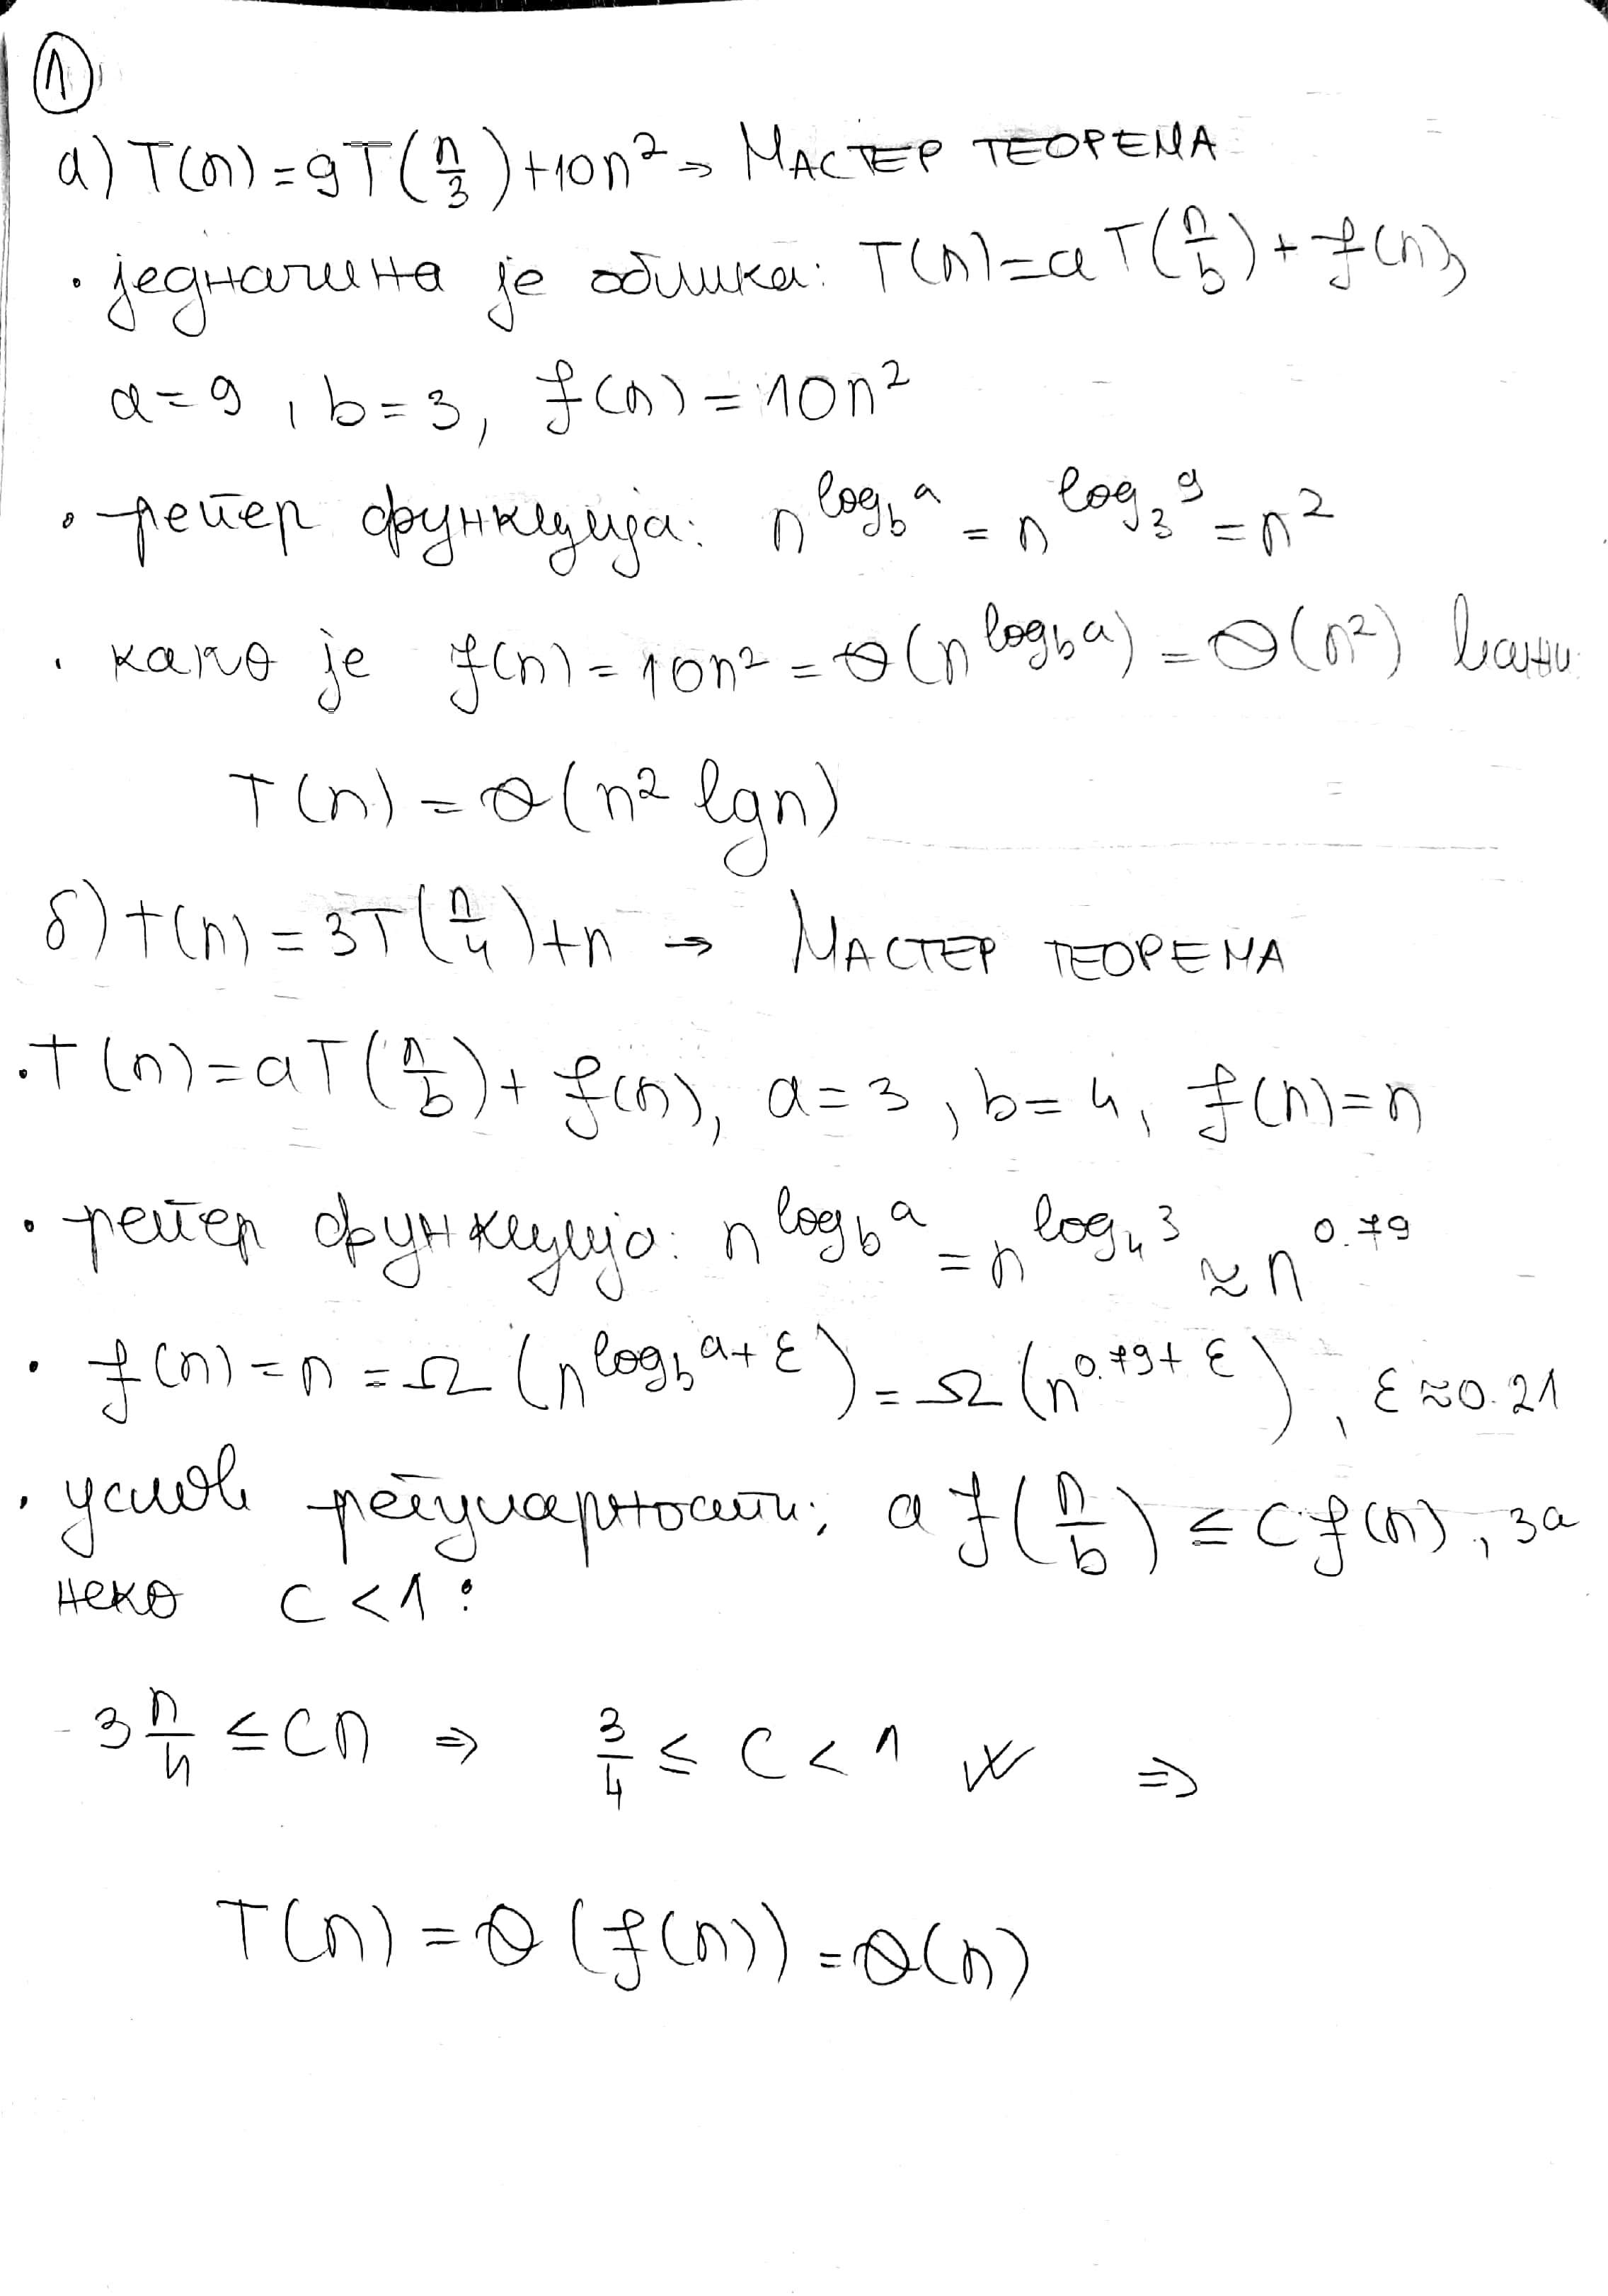 1
а) T(n)=9T(n/3)+10n² → МАСТЕР ТЕОРЕМА
• једначина је облика: T(n)=aT(n/b)+f(n),
a=9, b=3, f(n)=10n²
• репер функција: n^(log_b a) = n^(log_3 9) = n²
• како је f(n)=10n²=Θ(n^(log_b a))=Θ(n²) важи:
T(n)=Θ(n² lgn)
б) T(n)=3T(n/4)+n → МАСТЕР ТЕОРЕМА
• T(n)=aT(n/b)+f(n), a=3, b=4, f(n)=n
• репер функција: n^(log_b a) = n^(log_4 3) ≈ n^0.79
• f(n)=n=Ω(n^(log_b a+ε))=Ω(n^(0.79+ε)), ε≈0.21
• услов регуларности: a f(n/b) ≤ c f(n), за
неко c<1:
3 n/4 ≤ cn ⇒ 3/4 ≤ c < 1 ✓ ⇒
T(n)=Θ(f(n))=Θ(n)